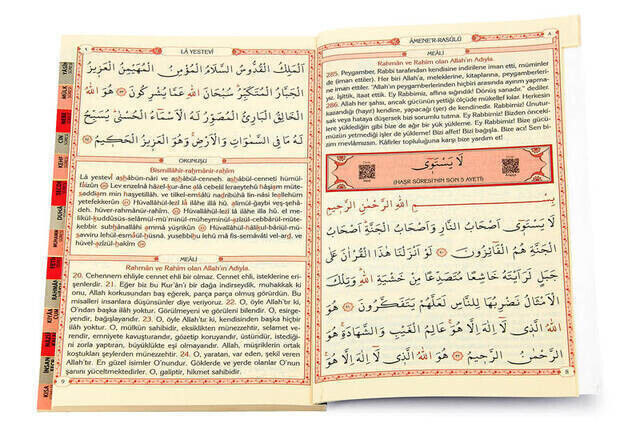 ÂMENE'R-RASÛLÜ
٨
MEÂLİ
Rahman ve Rahîm olan Allah'ın Adıyla.
285. Peygamber, Rabbi tarafından kendisine indirilene iman etti, müminler
de (iman ettiler). Her biri Allah'a, meleklerine, kitaplarına, peygamberleri-
ne iman ettiler. "Allah'ın peygamberlerinden hiçbiri arasında ayırım yapma-
yız. İşittik, itaat ettik. Ey Rabbimiz, affına sığındık! Dönüş sanadır." dediler.
286. Allah her şahsı, ancak gücünün yettiği ölçüde mükellef kılar. Herkesin
kazandığı (hayır) kendine, yapacağı (şer) de kendinedir. Rabbimiz! Unutur-
sak veya hataya düşersek bizi sorumlu tutma. Ey Rabbimiz! Bizden önceki-
lere yüklediğin gibi bize de ağır bir yük yükleme. Ey Rabbimiz! Bize gücü-
müzün yetmediği işler de yükleme! Bizi affet! Bizi bağışla. Bize acı! Sen bi-
zim mevlâmızsın. Kâfirler topluluğuna karşı bize yardım et!
لَا يَسْتَوِي
(HAŞR SÛRESİ'NİN SON 5 AYETİ)
بِسْمِ اللّٰهِ الرَّحْمٰنِ الرَّحِيمِ
لَا يَسْتَوِي اَصْحَابُ النَّارِ وَاَصْحَابُ الْجَنَّةِ اَصْحَابُ
الْجَنَّةِ هُمُ الْفَائِزُونَ ﴿٢٠﴾ لَوْ اَنْزَلْنَا هٰذَا الْقُرْاٰنَ عَلٰى
جَبَلٍ لَرَاَيْتَهُ خَاشِعًا مُتَصَدِّعًا مِنْ خَشْيَةِ اللّٰهِ وَتِلْكَ
الْاَمْثَالُ نَضْرِبُهَا لِلنَّاسِ لَعَلَّهُمْ يَتَفَكَّرُونَ ﴿٢١﴾ هُوَ
اللّٰهُ الَّذِي لَا اِلٰهَ اِلَّا هُوَ عَالِمُ الْغَيْبِ وَالشَّهَادَةِ هُوَ
الرَّحْمٰنُ الرَّحِيمُ ﴿٢٢﴾ هُوَ اللّٰهُ الَّذِي لَا اِلٰهَ اِلَّا هُوَ
8
LÂ YESTEVÎ
٩
اَلْمَلِكُ الْقُدُّوسُ السَّلَامُ الْمُؤْمِنُ الْمُهَيْمِنُ الْعَزِيزُ
الْجَبَّارُ الْمُتَكَبِّرُ سُبْحَانَ اللّٰهِ عَمَّا يُشْرِكُونَ ﴿٢٣﴾ هُوَ اللّٰهُ
الْخَالِقُ الْبَارِئُ الْمُصَوِّرُ لَهُ الْاَسْمَاءُ الْحُسْنٰى يُسَبِّحُ
لَهُ مَا فِي السَّمٰوَاتِ وَالْاَرْضِ وَهُوَ الْعَزِيزُ الْحَكِيمُ ﴿٢٤﴾
OKUNUŞU
Bismillâhir-rahmânir-rahîm
Lâ yestevî ashâbün-nâri ve ashâbül-cenneh. ashâbül-cenneti hümül-
fâizûn 20 Lev enzelnâ hâzel-kur-âne alâ cebelil leraeytehû hâşiam müte-
saddiam min haşyetillâh. ve tilkel-emsâlü nadribühâ lin-nâsi leallehüm
yetefekkerûn 21 Hüvallâhül-lezî lâ ilâhe illâ hû. alimül-ğaybi veş-şehâ-
deh. hüver-rahmânür-rahîm. 22 Hüvallâhül-lezî lâ ilâhe illâ hû. el me-
likül-kuddûsüs-selâmül-mü'minül-müheyminül-azîzül-cebbârul-müte-
kebbir. sübhânallâhi ammâ yüşrikûn 23 Hüvallâhül-hâlikul-bâriül-mü-
savviru lehül-esmâül-hüsnâ. yusebbihu lehû mâ fis-semâvâti vel-ard, ve
hüvel-azîzül-hakîm 24
MEÂLİ
Rahmân ve Rahîm olan Allah'ın Adıyla.
20. Cehennem ehliyle cennet ehli bir olmaz. Cennet ehli, isteklerine eri-
şenlerdir. 21. Eğer biz bu Kur'ân'ı bir dağa indirseydik, muhakkak ki
onu, Allah korkusundan baş eğerek, parça parça olmuş görürdün. Bu
misalleri insanlara düşünsünler diye veriyoruz. 22. O, öyle Allah'tır ki,
O'ndan başka ilâh yoktur. Görülmeyeni ve görüleni bilendir. O, esirge-
yendir, bağışlayandır. 23. O, öyle Allah'tır ki, kendisinden başka hiçbir
ilâh yoktur. O, mülkün sahibidir, eksiklikten münezzehtir, selamet ve-
rendir, emniyete kavuşturandır, gözetip koruyandır, üstündür, istediği-
ni zorla yaptıran, büyüklükte eşi olmayandır. Allah, müşriklerin ortak
koştukları şeylerden münezzehtir. 24. O, yaratan, var eden, şekil veren
Allah'tır. En güzel isimler O'nundur. Göklerde ve yerde olanlar O'nun
şanını yüceltmektedirler. O, galiptir, hikmet sahibidir.
9
YÂSÎN
MÜLK
NEBE
CİN
KEHF
SECDE
DUHÂN
FETİH
RAHMÂN
VÂKIA
CUMA
İNSAN
KISA